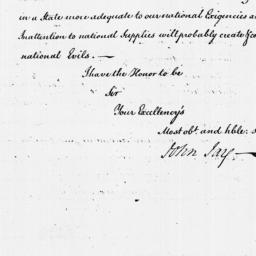 in a State more adequate to our national Exigencies a
Inattention to national Supplies will probably create
national Evils. —
I have the Honor to be
Sir
Your Excellency's
Most obt. and hble. s
John Jay —